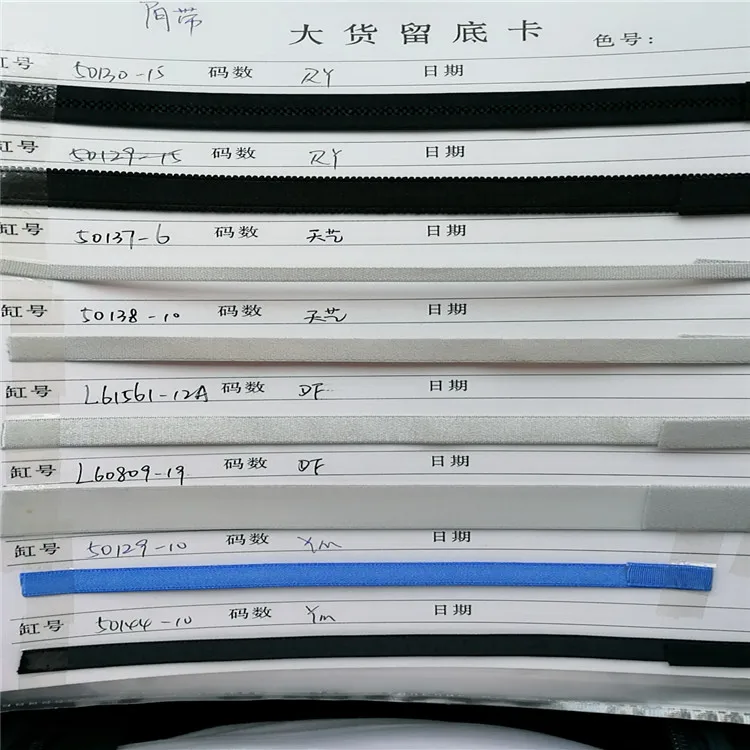 肩带
大货留底卡 色号：
缸号 50130-15 码数 RY 日期
缸号 50129-15 码数 RY 日期
缸号 50137-6 码数 天艺 日期
缸号 50138-10 码数 天艺 日期
缸号 L61561-12A 码数 DF 日期
缸号 L60809-19 码数 DF 日期
缸号 50129-10 码数 Ym 日期
缸号 50144-10 码数 Ym 日期